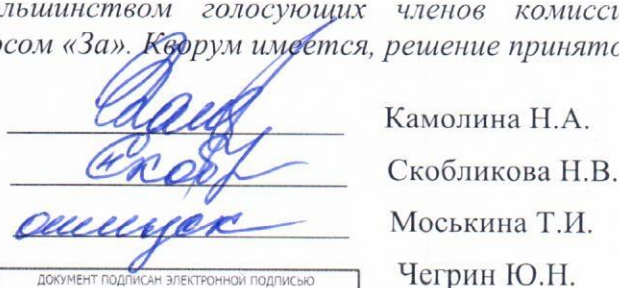 ольшинством голосующих членов комисси
осом «За». Кворум имеется, решение принято
Камолина Н.А.
Скоб Скобликова Н.В.
отпуск Моськина Т.И.
ДОКУМЕНТ ПОДПИСАН ЭЛЕКТРОННОЙ ПОДПИСЬЮ Чегрин Ю.Н.